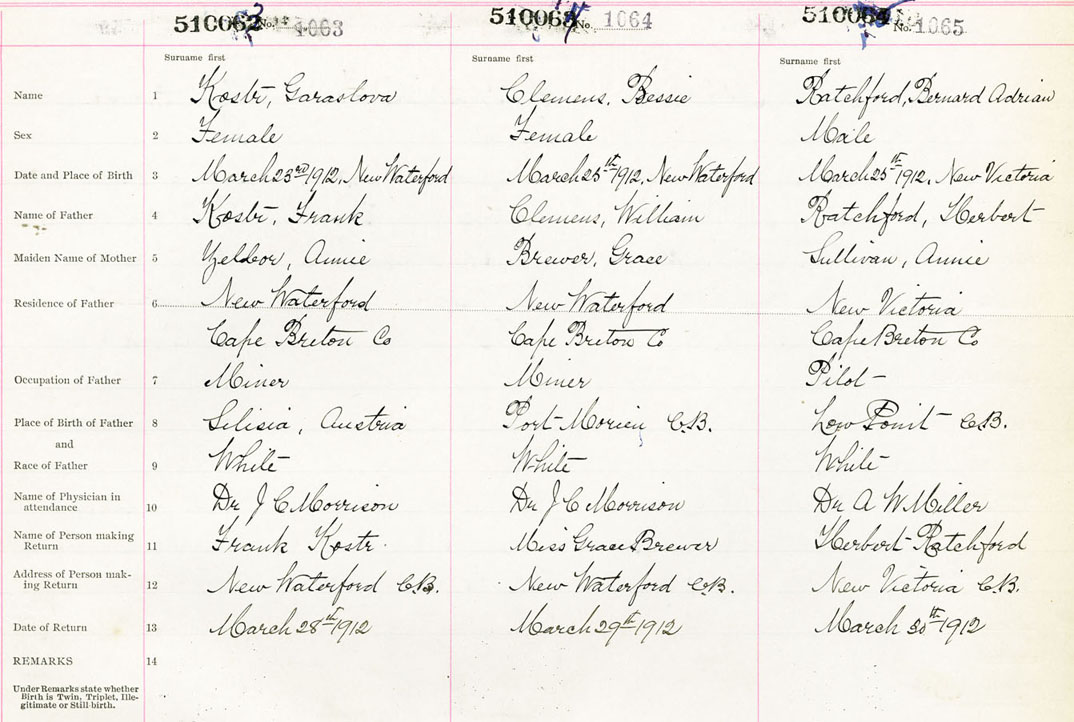 510063 No. 1063
510063 No. 1064
510064 No. 1065
Surname first Surname first Surname first
Name 1 Kostr, Garaslova Clemens, Bessie Ratchford, Bernard Adrian
Sex 2 Female Female Male
Date and Place of Birth 3 March 23rd 1912, New Waterford March 25th 1912, New Waterford March 25th 1912, New Victoria
Name of Father 4 Kostr, Frank Clemens, William Ratchford, Herbert
Maiden Name of Mother 5 Annie Brewer, Grace Sullivan, Annie
Residence of Father 6 New Waterford New Waterford New Victoria
Cape Breton Co Cape Breton Co Cape Breton Co
Occupation of Father 7 Miner Miner Pilot
Place of Birth of Father 8 Silisia, Austria Port Morien C.B. Low Point C.B.
and
Race of Father 9 White White White
Name of Physician in
attendance 10 Dr J C Morrison Dr J C Morrison Dr A W Miller
Name of Person making
Return 11 Frank Kostr. Miss Grace Brewer Herbert Ratchford
Address of Person mak-
ing Return 12 New Waterford C.B. New Waterford C.B. New Victoria C.B.
Date of Return 13 March 28th 1912 March 29th 1912 March 30th 1912
REMARKS 14
Under Remarks state whether
Birth is Twin, Triplet, Ille-
gitimate or Still-birth.